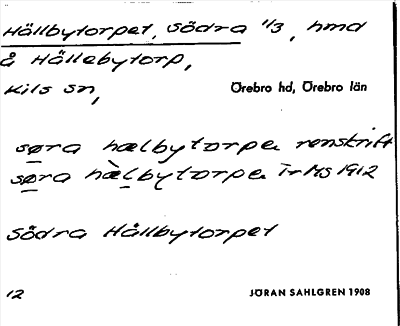 Hällbytorpet, Södra 1/3, hmd
å Hällebytorp,
Kils sn,
Örebro hd, Örebro län
søra hælbytorpa renskrift
søra hælbytorpa Tr Ms 1912
Södra Hällbytorpet
12
JÖRAN SAHLGREN 1908